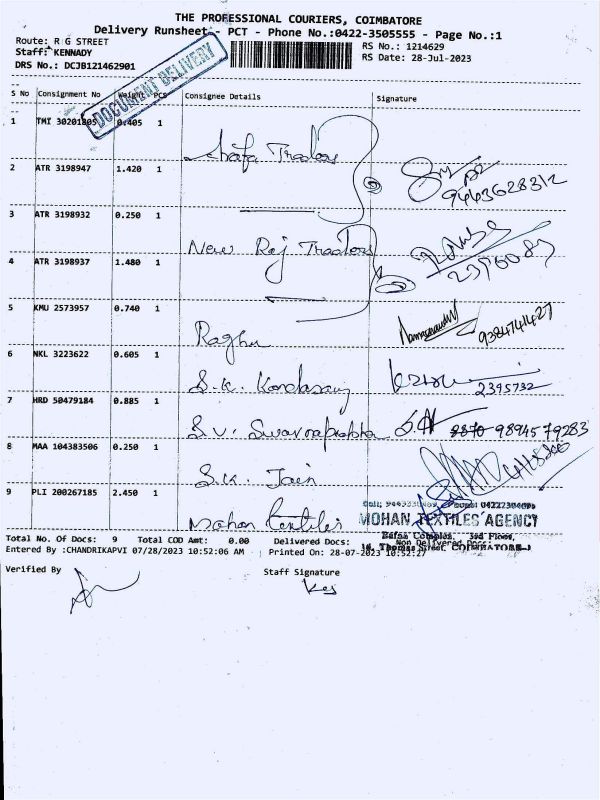 THE PROFESSIONAL COURIERS, COIMBATORE
Delivery Runsheet - PCT - Phone No.:0422-3505555 - Page No.:1
Route: R G STREET
RS No.: 1214629
Staff: KENNADY
RS Date: 28-Jul-2023
DRS No.: DCJB121462901
DOCUMENT DELIVERY
S No Consignment No Weight PCS Consignee Details Signature
1 TMI 30201805 0.405 1
Traders
2 ATR 3198947 1.420 1
9443628312
3 ATR 3198932 0.250 1
New Raj Traders
4 ATR 3198937 1.480 1
2396089
5 KMU 2573957 0.740 1
Raghu 9384741427
6 NKL 3223622 0.605 1
S.K. Kandasamy 2395732
7 HRD 50479184 0.885 1
S.V. Swarnaprabha 9894579283
8 MAA 104383506 0.250 1
S.K. Jain
9 PLI 200267185 2.450 1
Mohan Textiles
MOHAN TEXTILES AGENCY
Bafna Complex, 3rd Floor,
Thomas Street, COIMBATORE-1
Total No. Of Docs: 9 Total COD Amt: 0.00 Delivered Docs: Non Delivered Docs:
Entered By :CHANDRIKAPVI 07/28/2023 10:52:06 AM Printed On: 28-07-2023 10:52:27
Verified By Staff Signature